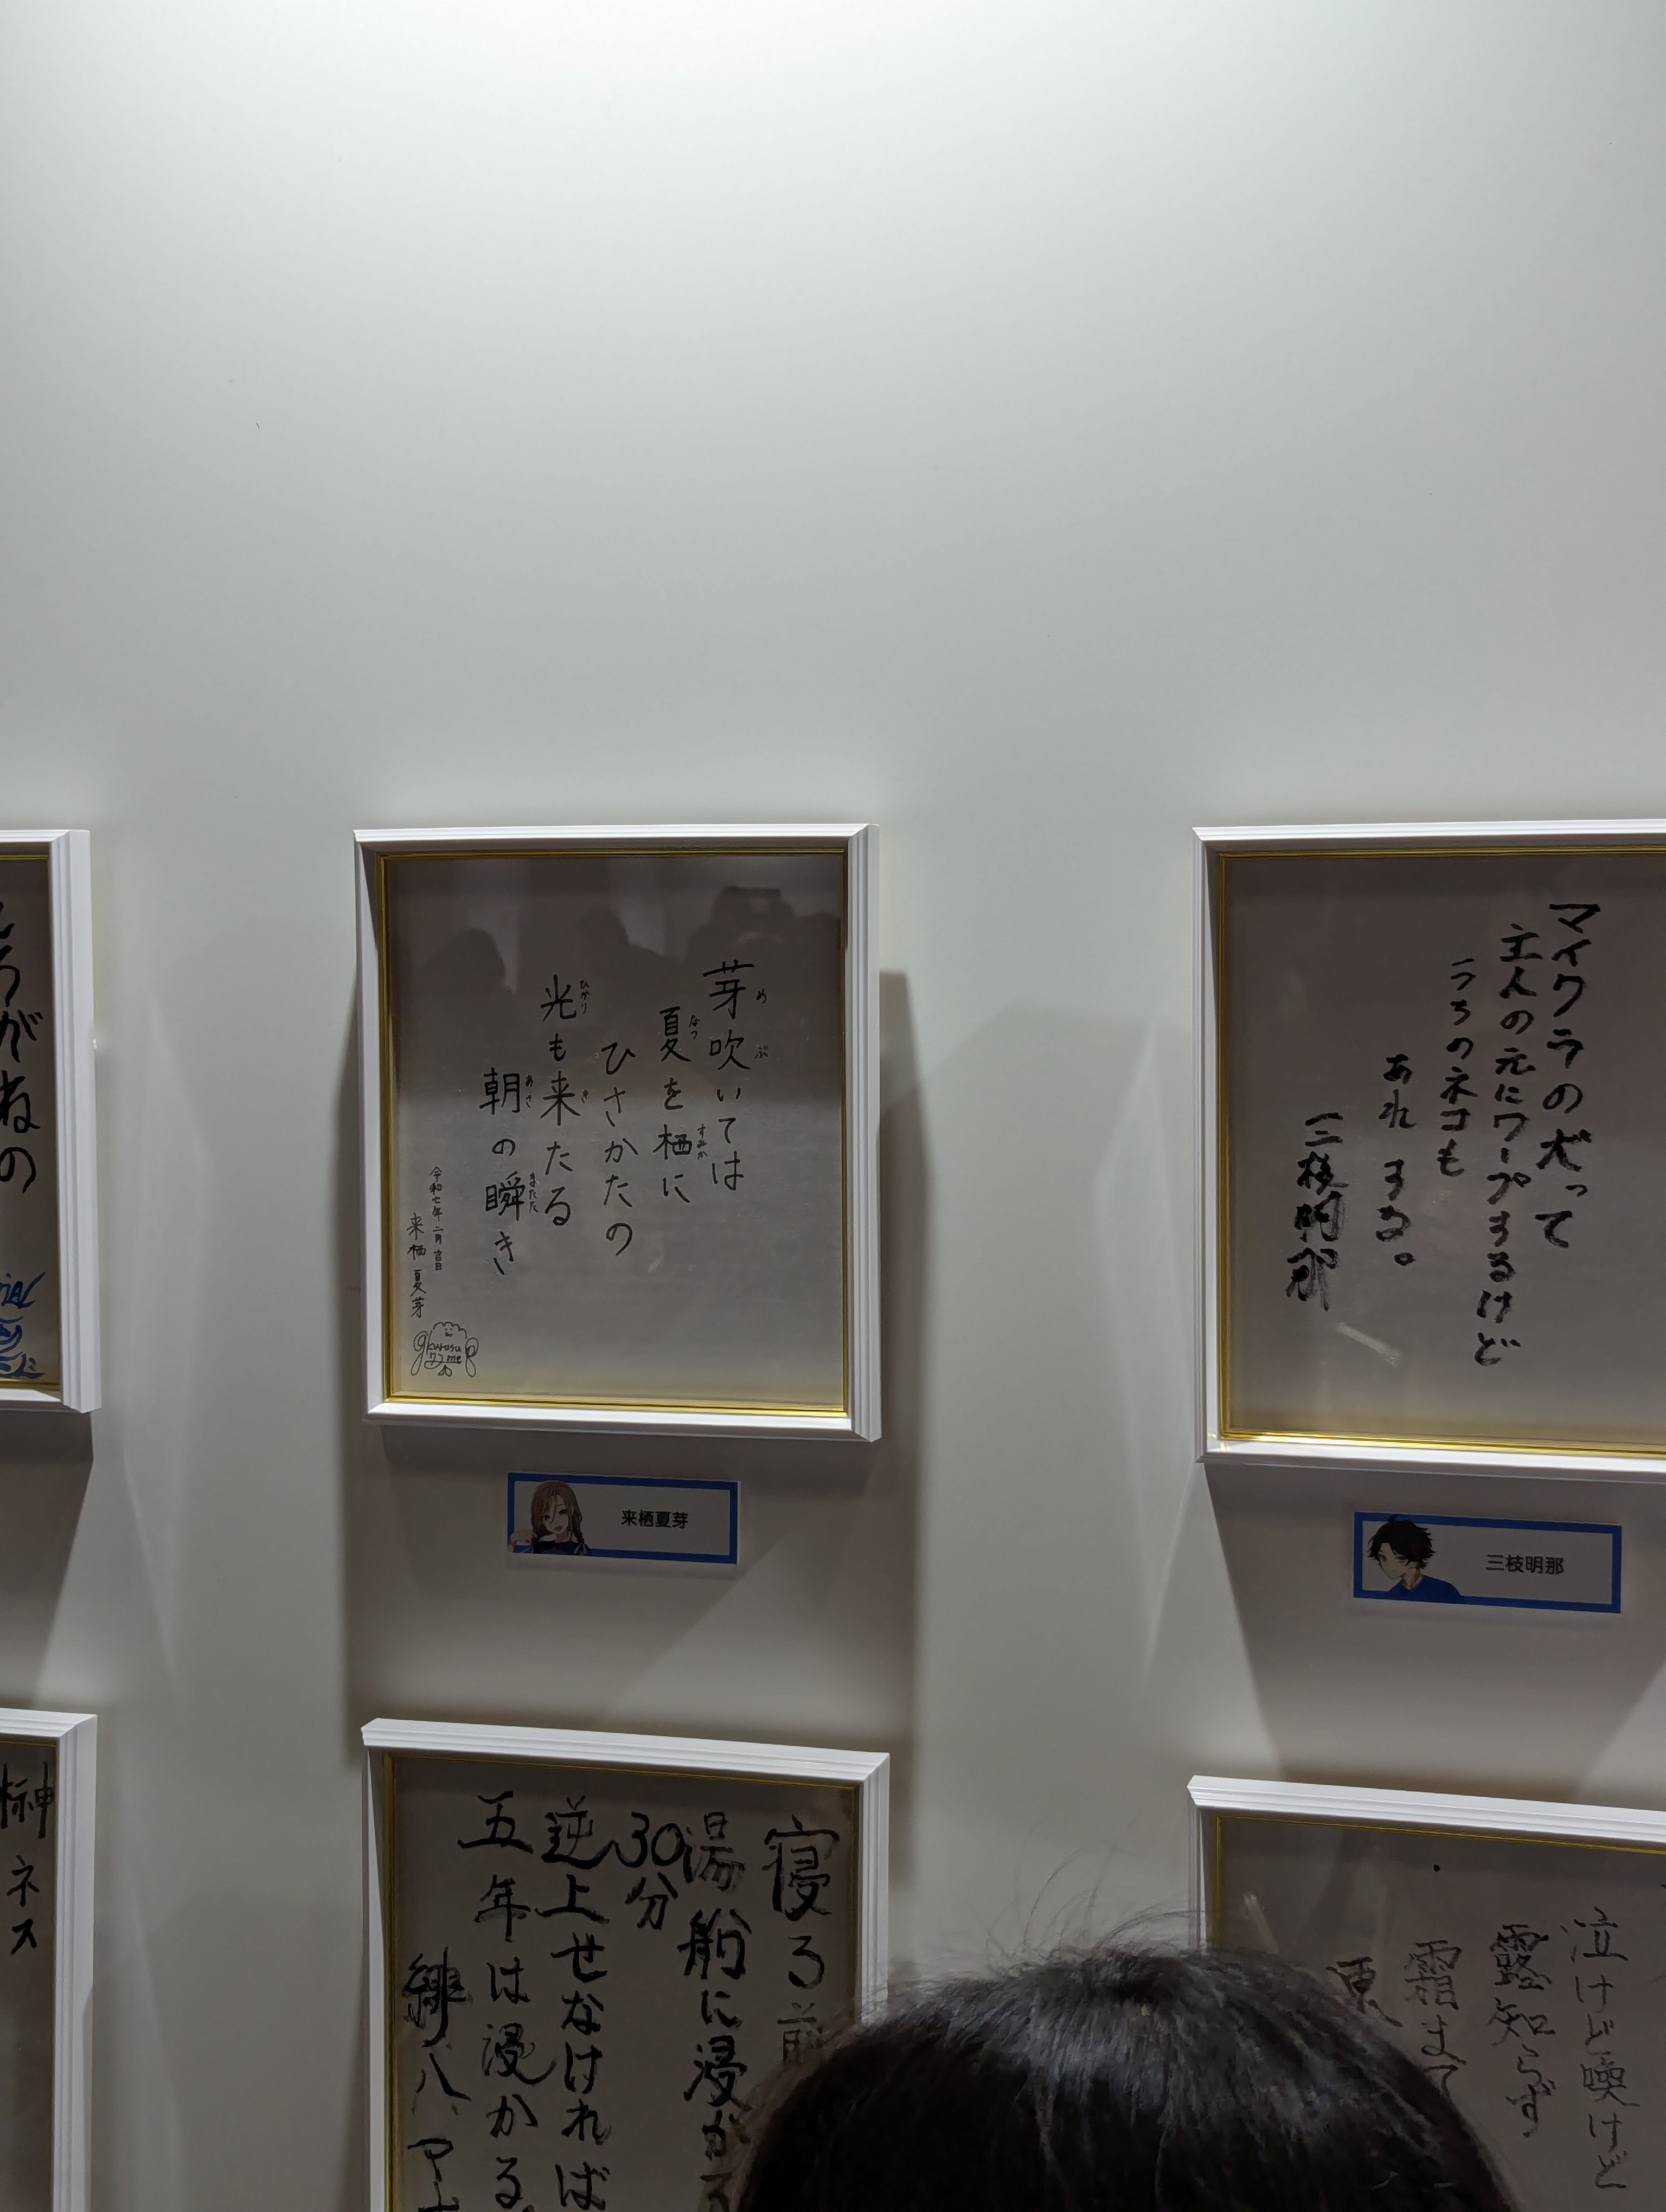 芽吹いては
めぶ
夏を栖に
なつ
すみか
ひさかたの
光も来たる
ひかり
き
朝の瞬き
あさ
またた
令和七年二月吉日
来栖夏芽
kurusu
natsume
来栖夏芽
マイクラの犬って
主人の元にワープするけど
うちのネコも
あれする。
三枝明那
三枝明那
がねの
榊ネス
寝る前
湯船に浸かる
30分
逆上せなければ
五年は浸かる
緋八マナ
泣けど喚けど
露知らず
霜まで
東